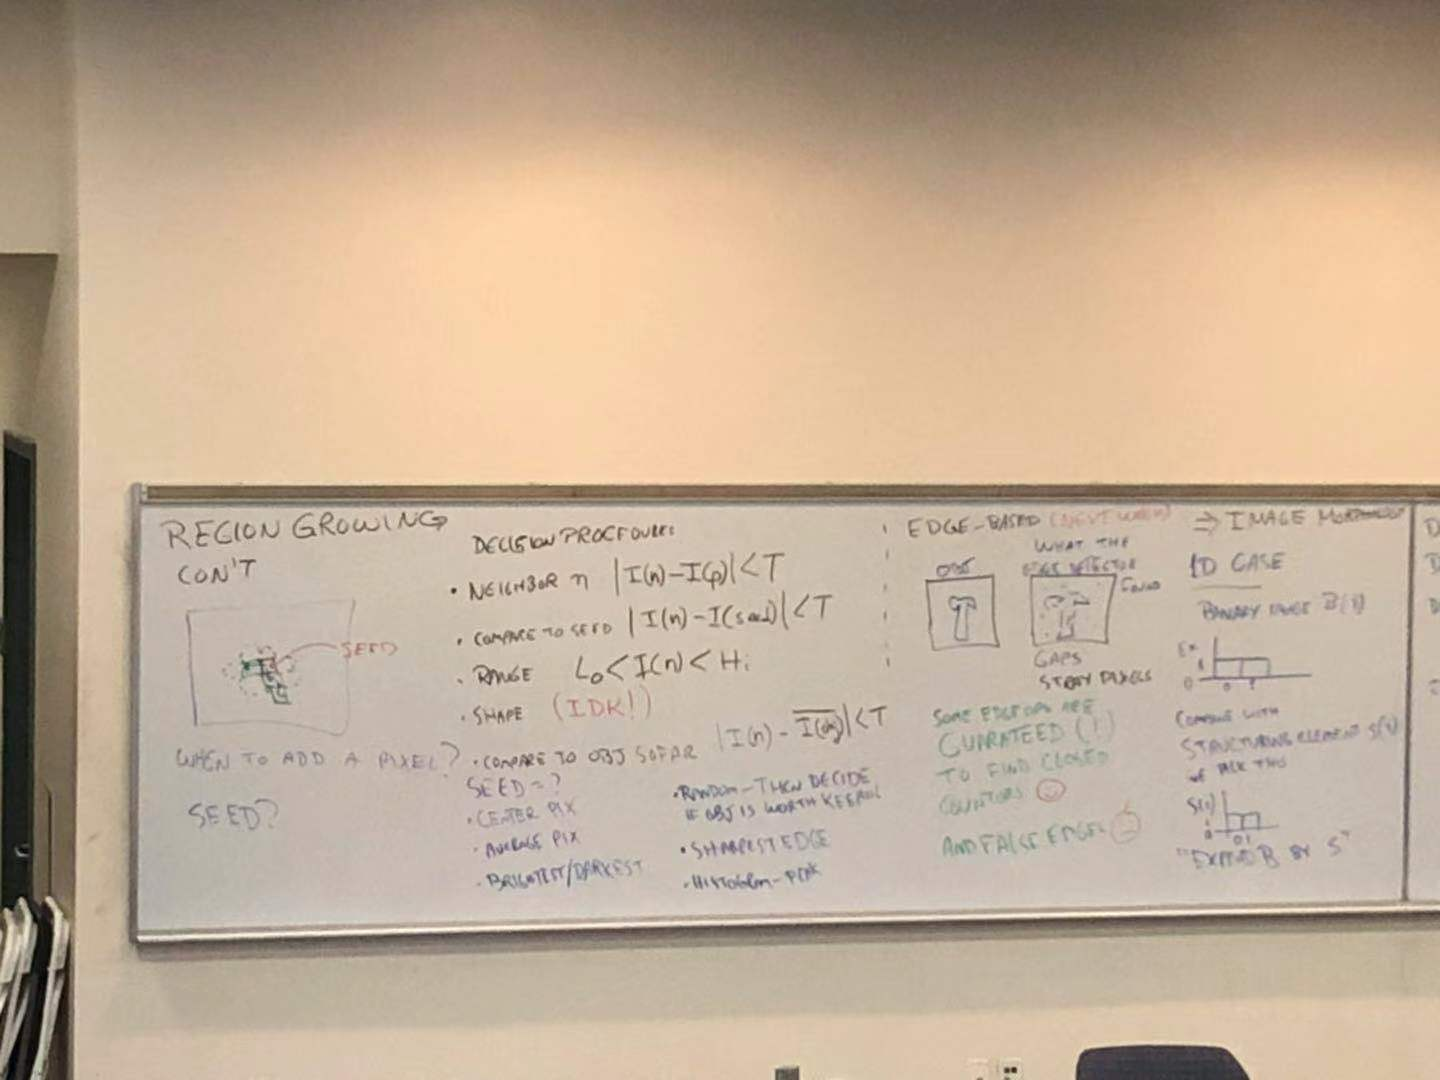 REGION GROWING
CON'T
SEED
WHEN TO ADD A PIXEL?
SEED?
DECISION PROCEDURE:
• NEIGHBOR n |I(n)-I(p)|<T
• COMPARE TO SEED |I(n)-I(seed)|<T
• RANGE Lo<I(n)<Hi
• SHAPE (IDK!)
• COMPARE TO OBJ SO FAR |I(n)-I(obj)|<T
SEED=?
• CENTER PIX
• AVERAGE PIX
• BRIGHTEST/DARKEST
• RANDOM-THEN DECIDE
IF OBJ IS WORTH KEEPING
• SHARPEST EDGE
• HISTOGRAM-PEAK
EDGE-BASED (NEXT WEEK)
OBJ
WHAT THE
EDGE DETECTOR
FOUND
GAPS
STRAY PIXELS
SOME EDGE ARE
GUARATEED (!)
TO FIND CLOSED
COUNTORS
AND FALSE EDGES
⇒ IMAGE MORPHOLOGY
1D CASE
BINARY IMAGE B( )
Ex.
1
0
0 1
COMBINE WITH
STRUCTURING ELEMENT S( )
S( )
1
0
0 1
"EXPAND B BY S"